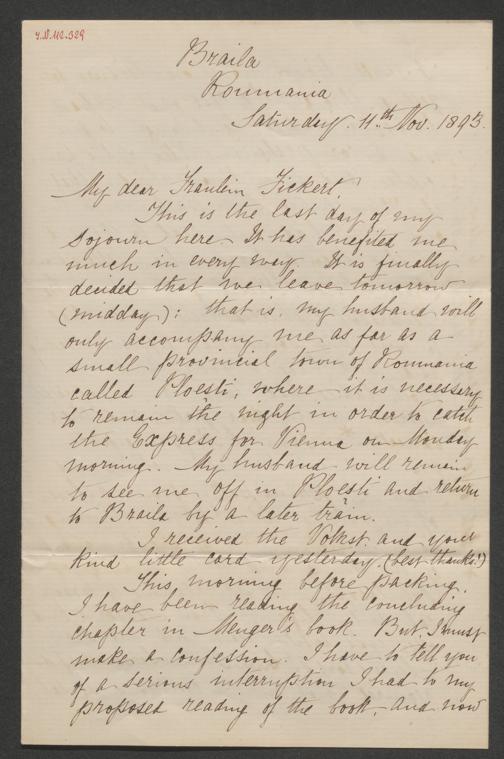 Y.N. 112.529
Braila
Roumania
Saturday. 11th Nov. 1893.
My dear Fraulein Fickert!
This is the last day of my
sojourn here. It has benefited me
much in every way. It is finally
decided that we leave tomorrow
(midday): that is, my husband will
only accompany me as far as a
small provincial town of Roumania
called Ploesti, where it is necessary
to remain the night in order to catch
the Express for Vienna on Monday
morning. My husband will remain
to see me off in Ploesti and return
to Braila by a later train.
I received the Volkst. and your
kind little card yesterday (best thanks!)
This morning before packing,
I have been reading the concluding
chapter in Menger's book. But I must
make a confession. I have to tell you
of a serious interruption I had to my
proposed reading of the book, and now